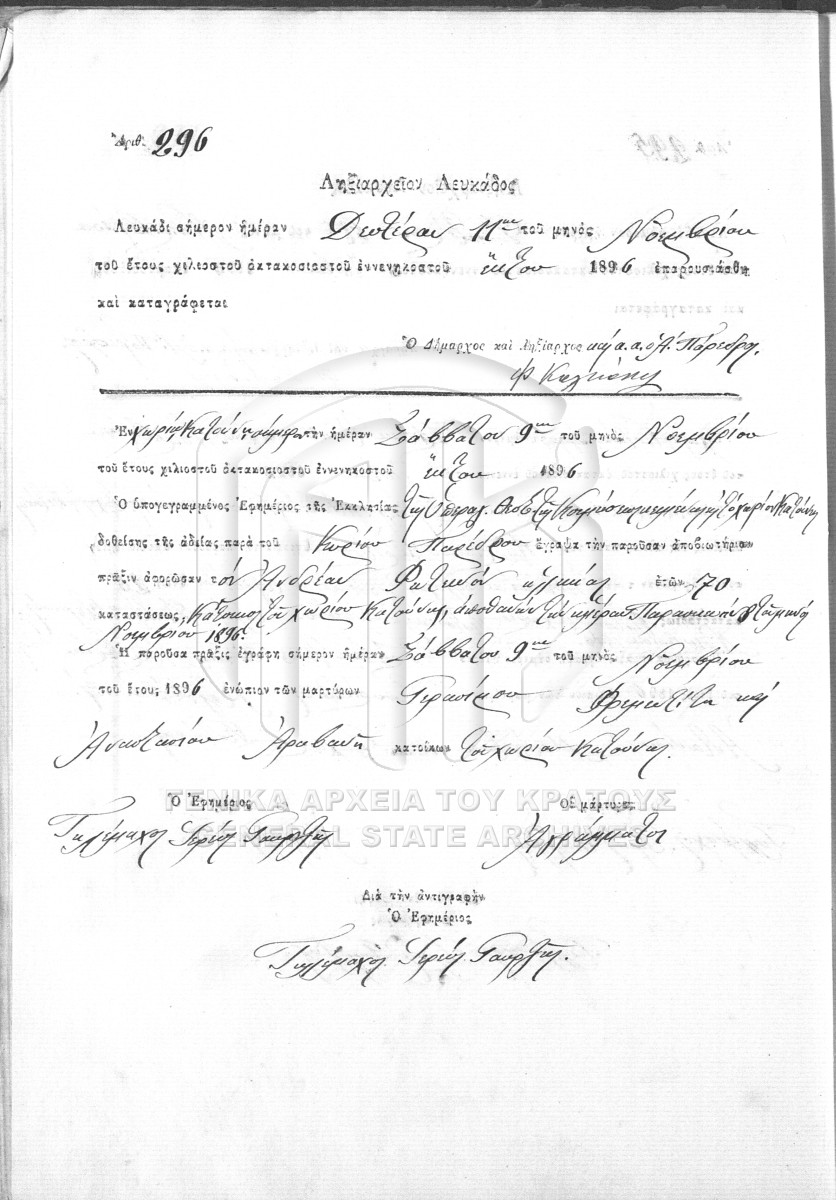 Ἀριθ. 296
Ληξιαρχεῖον Λευκάδος
Λευκάδι σήμερον ἡμέραν Δευτέραν 11ην τοῦ μηνὸς Νοεμβρίου
τοῦ ἔτους χιλιοστοῦ ὀκτακοσιοστοῦ ἐννενηκοστοῦ ἕκτου 1896 ἐπαρουσιάσθη
καὶ καταγράφεται
Ὁ Δήμαρχος καὶ Ληξίαρχος κ.α.α. ὁ Α. Πάρεδρος
Φ
Ἐν χωρίῳ Κατούνῃ σήμερον τὴν ἡμέραν Σάββατον 9ην τοῦ μηνὸς Νοεμβρίου
τοῦ ἔτους χιλιοστοῦ ὀκτακοσιοστοῦ ἐννενηκοστοῦ ἕκτου 1896
Ὁ ὑπογεγραμμένος Ἐφημέριος τῆς Ἐκκλησίας τῆς Ὑπεραγ. Θεοτόκου χωρίου Κατούνης
δοθείσης τῆς ἀδείας παρὰ τοῦ Κυρίου Παρέδρου ἔγραψα τὴν παροῦσαν ἀποβιωτήριον
πρᾶξιν ἀφορῶσαν τὸν Ἀνδρέαν ἡλικίας ἐτῶν 70
καταστάσεως, κάτοικος τοῦ χωρίου Κατούνης, ἀποθανὼν τὴν ἡμέραν Παρασκευὴν 8 τοῦ μηνὸς
Νοεμβρίου 1896.
Ἡ παροῦσα πρᾶξις ἐγράφη σήμερον ἡμέραν Σάββατον 9ην τοῦ μηνὸς Νοεμβρίου
τοῦ ἔτους 1896 ἐνώπιον τῶν μαρτύρων Γερασίμου καὶ
Ἀναστασίου Ἀραβανῆ κατοίκων τοῦ χωρίου Κατούνης.
ΓΕΝΙΚΑ ΑΡΧΕΙΑ ΤΟΥ ΚΡΑΤΟΥΣ
GENERAL STATE ARCHIVES
Ὁ Ἐφημέριος Οἱ μάρτυρες
Τηλέμαχος Ἱερεὺς Ἀγράμματοι
Διὰ τὴν ἀντιγραφὴν
Ὁ Ἐφημέριος
Τηλέμαχος Ἱερεὺς